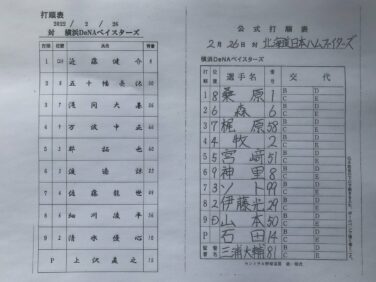 打順表
2022 / 2 / 26
対 横浜DeNAベイスターズ
1 DH 近藤健介 8
2 五十幡亮汰
3 浅間大基
4 万波中正
5 郡拓也
6 渡邉諒
7 佐藤龍世
8 細川凌平
9 2 清水優心
P 上沢直之 15
公式打順表
2月26日対 北海道日本ハムファイターズ
横浜DeNAベイスターズ
打順 位置 選手名 番号 交代
1 8 桑原 1 B D C E
2 6 森 6 B D C E
3 7 梶原 58 B D C E
4 4 牧 2 B D C E
5 5 宮崎 51 B D C E
6 9 神里 8 B D C E
7 3 ソト 99 B D C E
8 2 伊藤光 29 B D C E
9 D 山本 50 B D C E
P 石田 14 B D C E
監督 三浦大輔 81